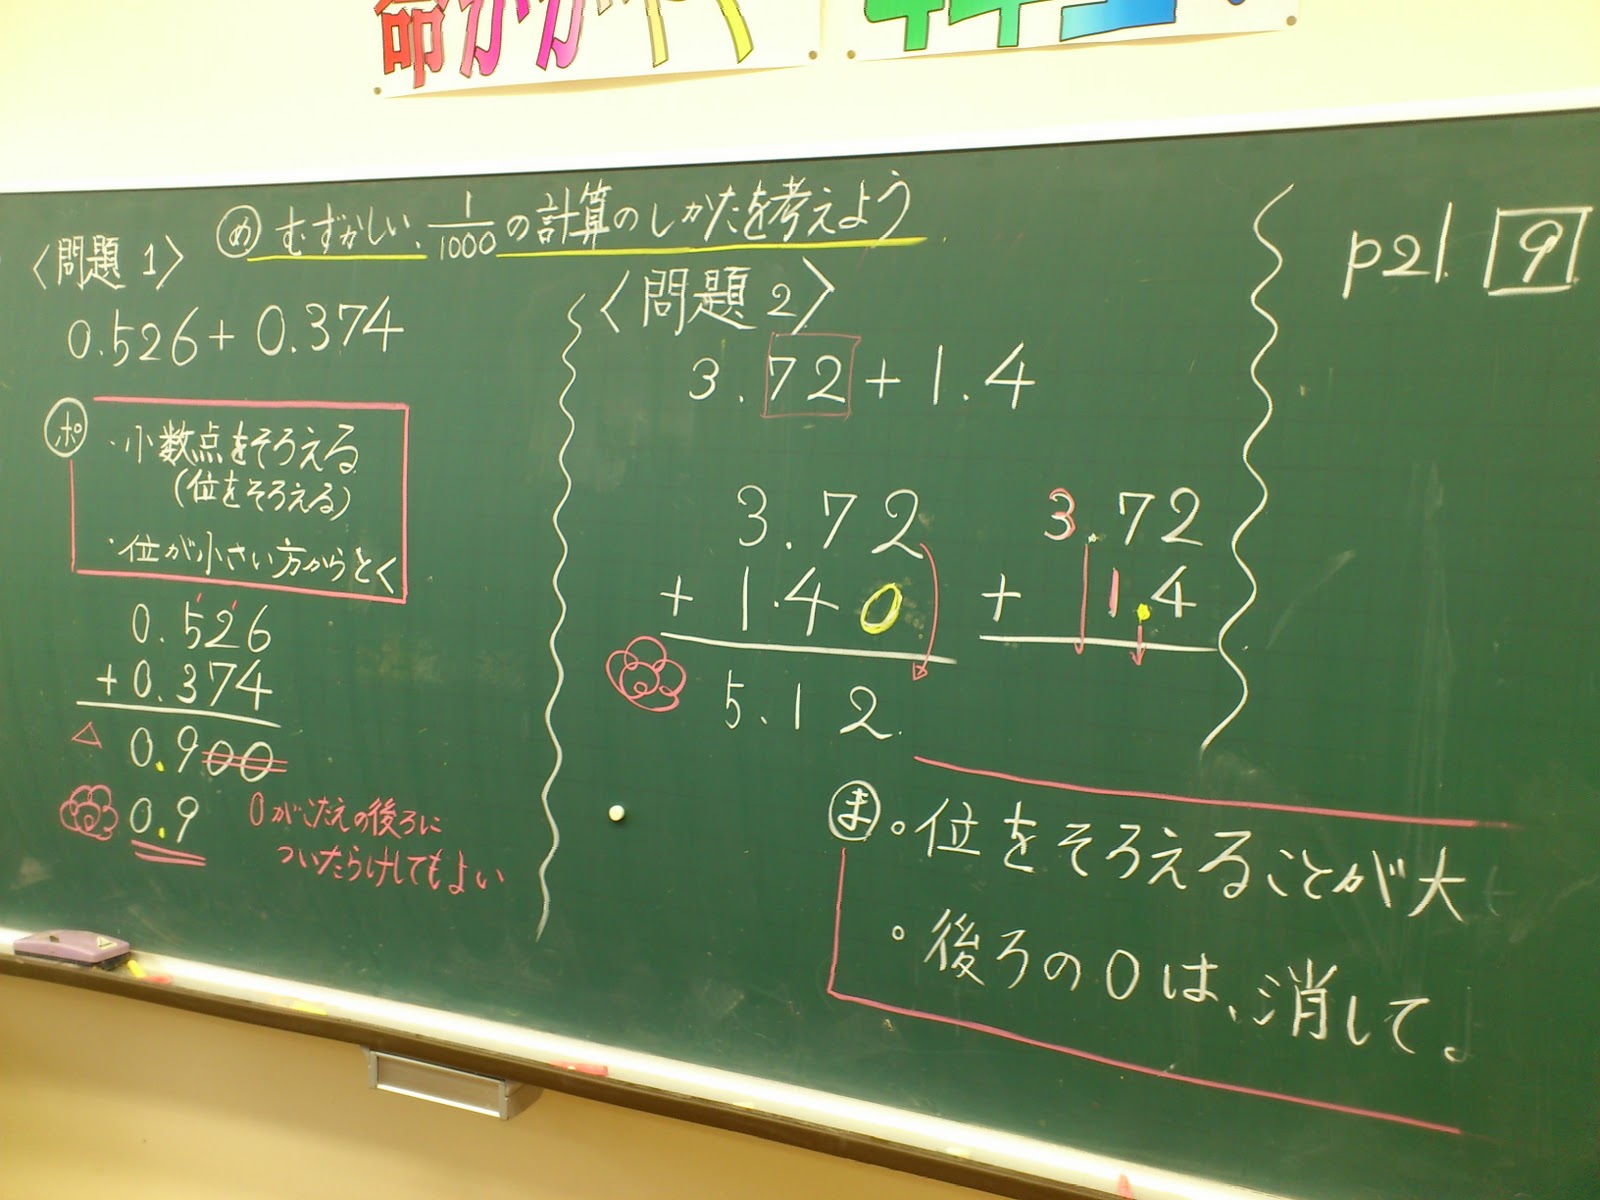 命がかがやく
め むずかしい、1/1000の計算のしかたを考えよう
〈問題 1〉
0.526+0.374
ポ
・小数点をそろえる
(位をそろえる)
・位が小さい方からとく
0.526
+0.374
△ 0.900
0.9
0がこたえの後ろに
ついたらけしてもよい
〈問題 2〉
3.72+1.4
3.72
+1.40
5.12
3.72
+ 1.4
ま
。位をそろえることが大
。後ろの0は、消して
p21 9